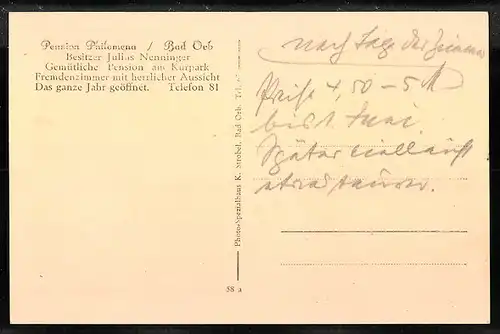 Pension Philomena / Bad Orb
Besitzer Julius Nenninger
Gemütliche Pension am Kurpark
Fremdenzimmer mit herrlicher Aussicht
Das ganze Jahr geöffnet. Telefon 81
nach Lage der Zimmer
Preise 4,50 – 5 M
bis 1. Juni.
Später vielleicht
etwas teurer.
Photo-Spezialhaus K. Strobel, Bad Orb, Tel.
58 a